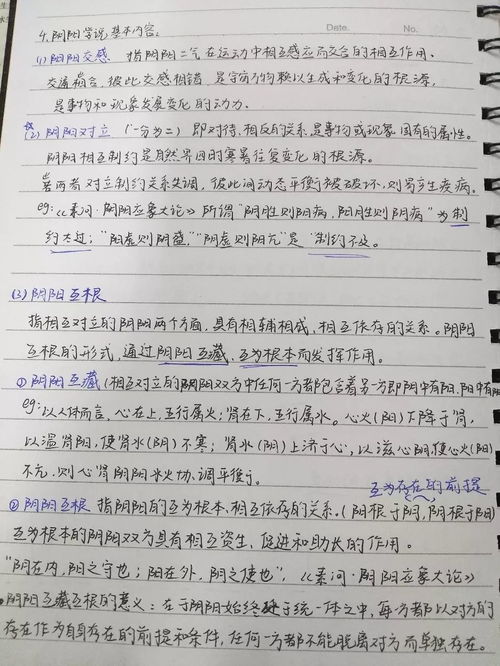 Date.
No.
4. 阴阳学说基本内容:
(1) 阴阳交感 指阴阳二气在运动中相互感应而交合的相互作用.
交通相合, 彼此交感相错, 是宇宙万物赖以生成和变化的根源,
是事物和现象发展变化的动力.
(2) 阴阳对立 (一分为二) 即对待、相反的关系, 是事物或现象固有的属性。
阴阳相互制约是自然界四时寒暑往复变化的根源。
若两者对立制约关系失调, 彼此间动态平衡被破坏, 则易产生疾病.
eg:《素问·阴阳应象大论》所谓"阴胜则阳病, 阳胜则阴病"为制
约太过; "阳虚则阴盛," "阴虚则阳亢"是"制约不及。
(3) 阴阳互根
指相互对立的阴阳两个方面, 具有相辅相成、相互依存的关系。阴阳
互根的形式, 通过阴阳互藏、互为根本而发挥作用。
① 阴阳互藏 (相互对立的阴阳双方中任何一方都包含着另一方即阴中有阳, 阳中有阴
eg: 以人体而言, 心在上, 五行属火; 肾在下, 五行属水。心火(阳)下降于肾,
以温肾阳, 使肾水(阴)不寒; 肾水(阴)上济于心, 以滋心阴, 使心火(阳)
不亢, 则心肾阴阳水火协调平衡.
互为存在的前提
② 阴阳互根 指阴阳的互为根本、相互依存的关系。(阳根于阴, 阴根于阳)
互为根本的阴阳双方具有相互资生、促进和助长的作用。
"阴在内, 阳之守也; 阳在外, 阴之使也",《素问·阴阳应象大论》
阴阳互藏互根的意义: 在于阴阳始终处于统一体之中, 每一方都以对方的
存在作为自身存在的前提和条件, 任何一方都不能脱离对方而单独存在。